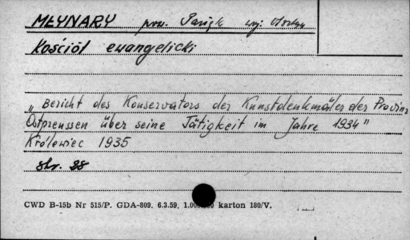 MŁYNARY pow. woj.
Kościół ewangelicki
„Bericht des Konservators der Kunstdenkmäler der Provinz
Ostpreussen über seine Tätigkeit im Jahre 1934"
Królewiec 1935
str. 38
CWD B-15b Nr 515/P. GDA-809. 6.3.59. karton 180/V.